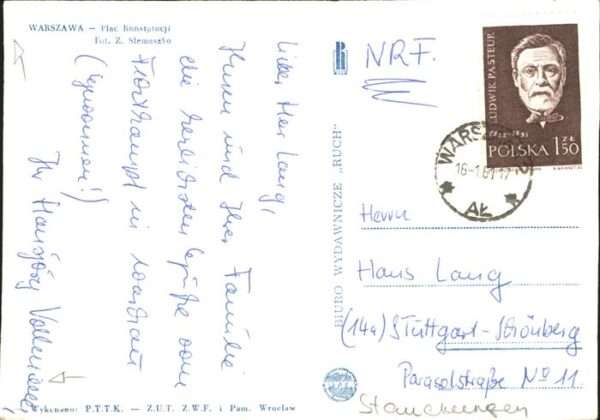 WARSZAWA — Plac Konstytucji
Fot. Z. Siemaszko
Lieber Herr Lang,
Ihnen und Ihrer Familie
die herzlichsten Grüße vom
in Warschau
(gewonnen!)
Ihr Hansjörg
Wykonano: P.T.T.K. — Z.U.T. Z.W.F. i Pam. Wrocław
BIURO WYDAWNICZE „RUCH”
NRF.
LUDWIK PASTEUR
1822-1895
POLSKA 1,50 ZŁ
WARSZ
16-1.61.17
AŁ
P.T.T.K.
Herrn
Hans Lang
(14a) Stuttgart-Strönberg
Parasolstraßen No 11